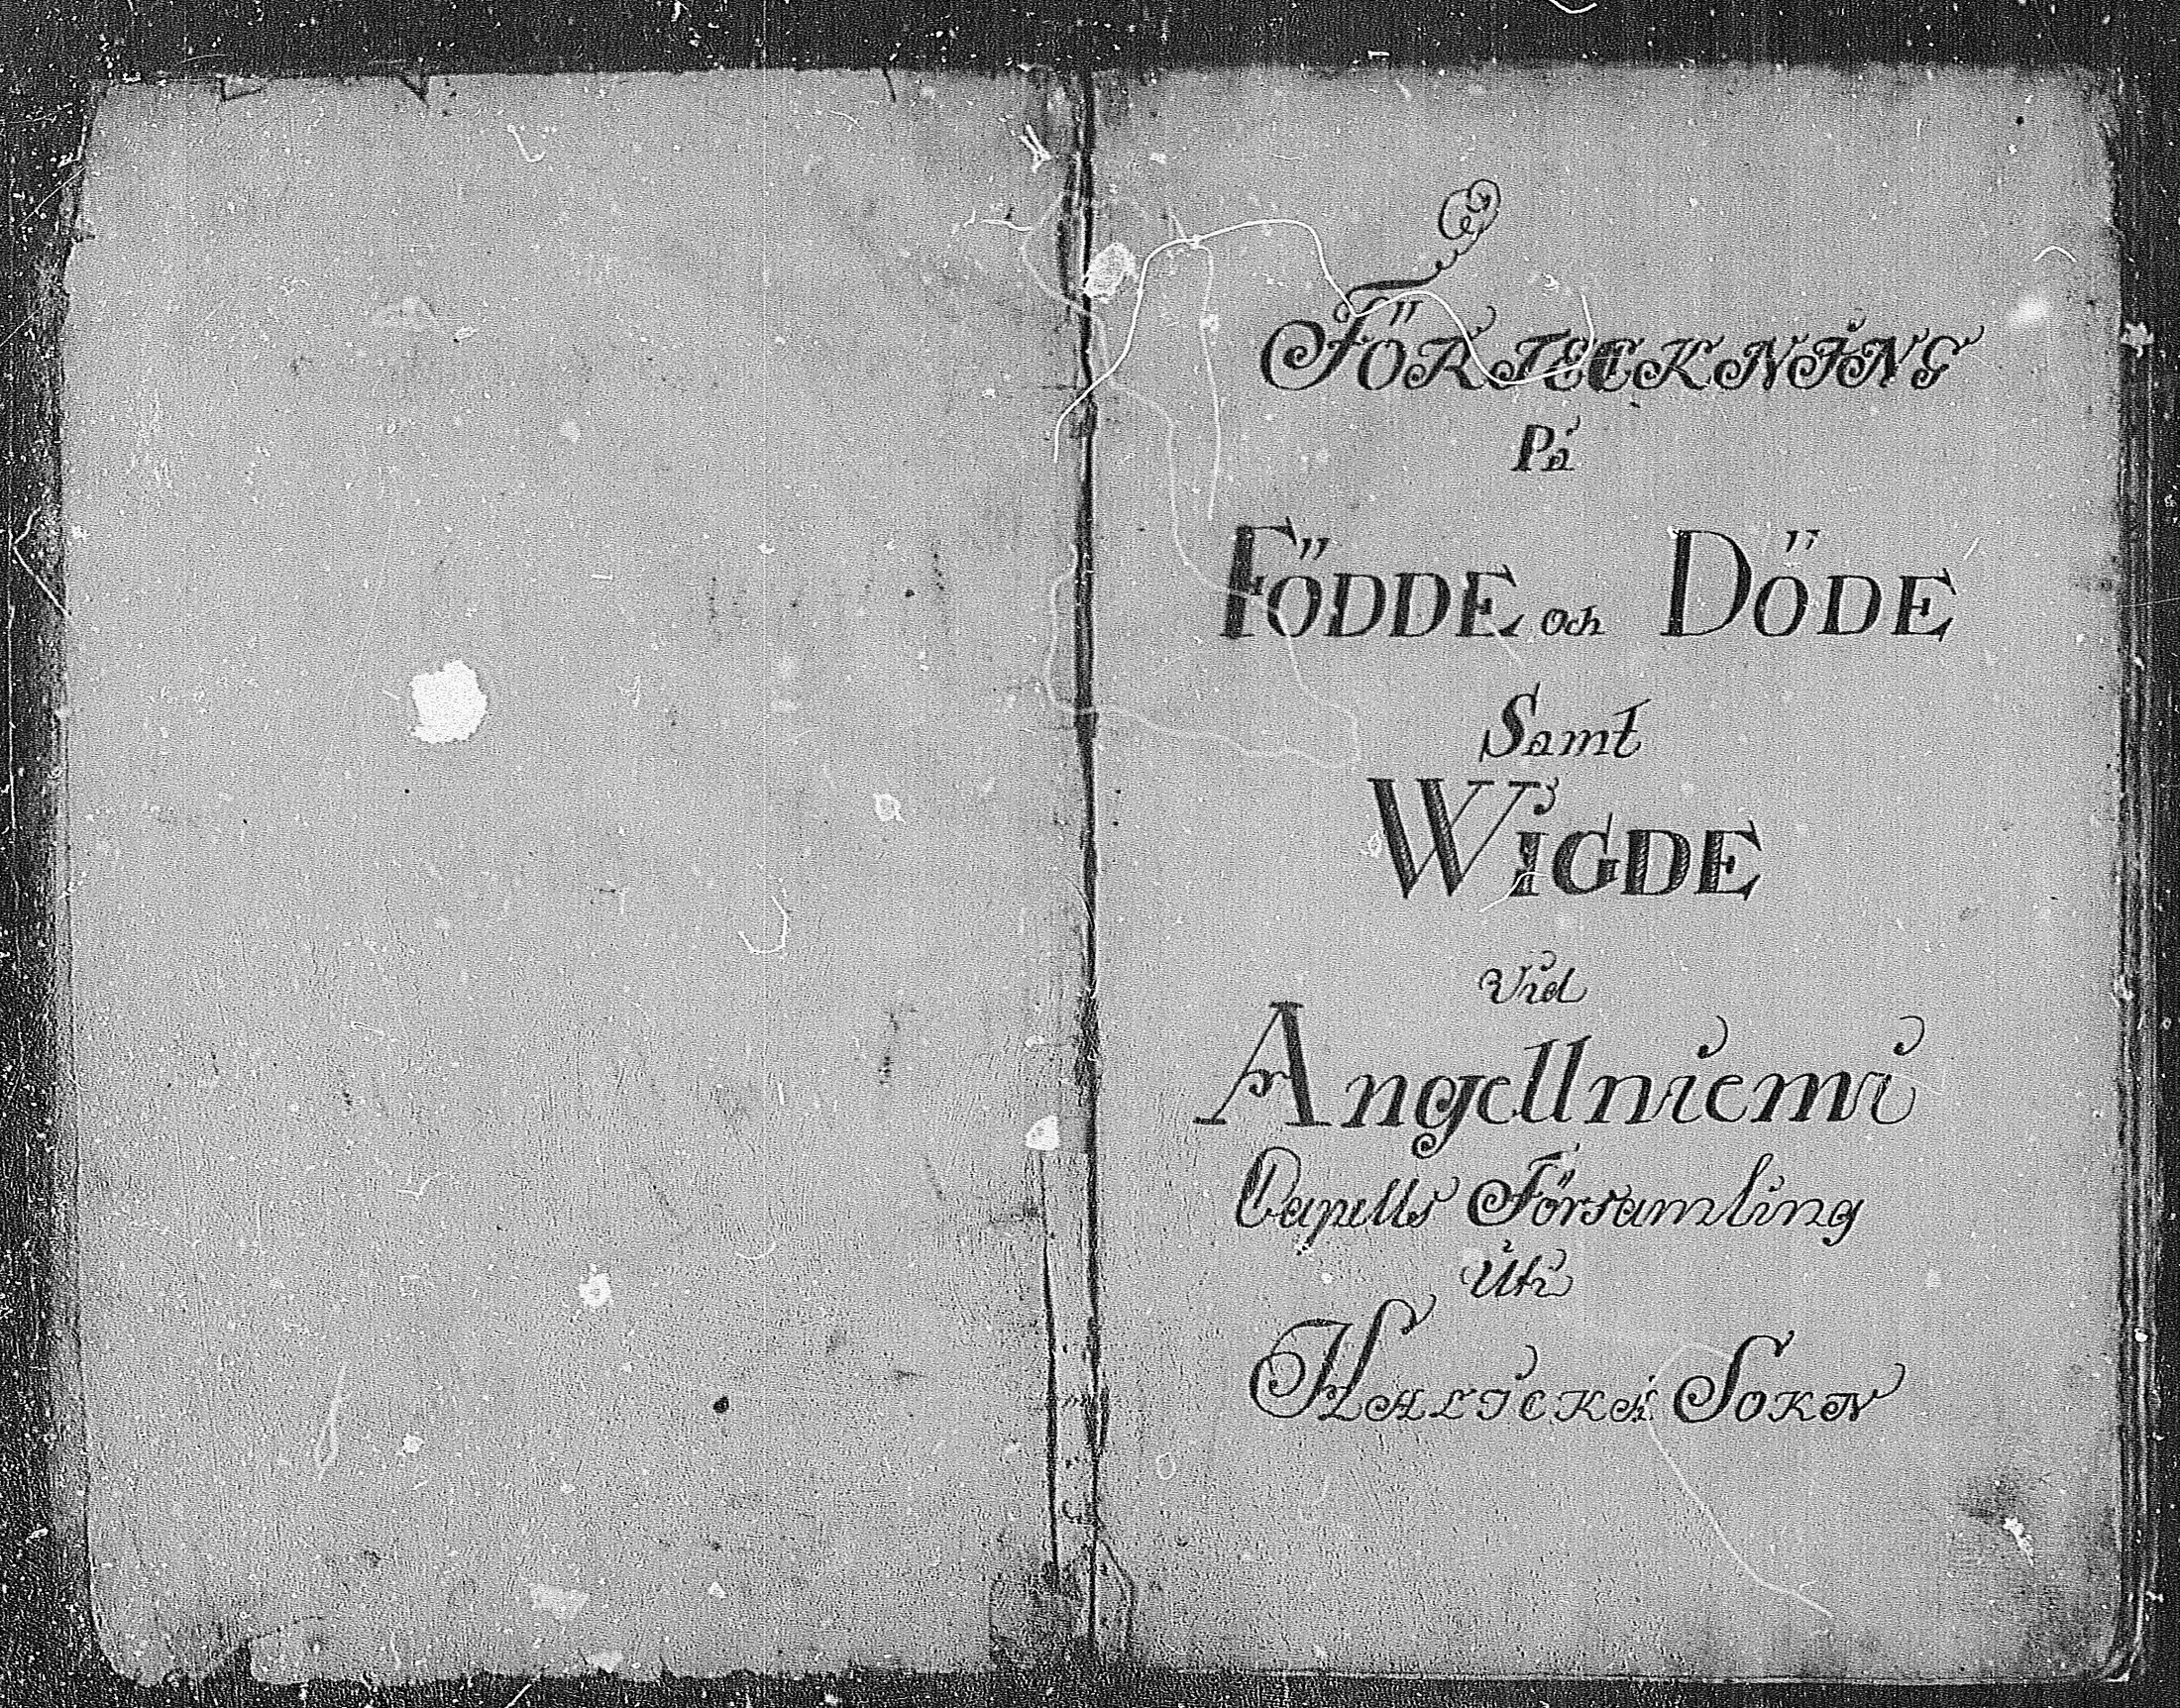 FÖRTECKNING
På
FÖDDE och DÖDE
Samt
WIGDE
Vid
Angellniemi
Capells Församling
Uti
HALICKA SOKN